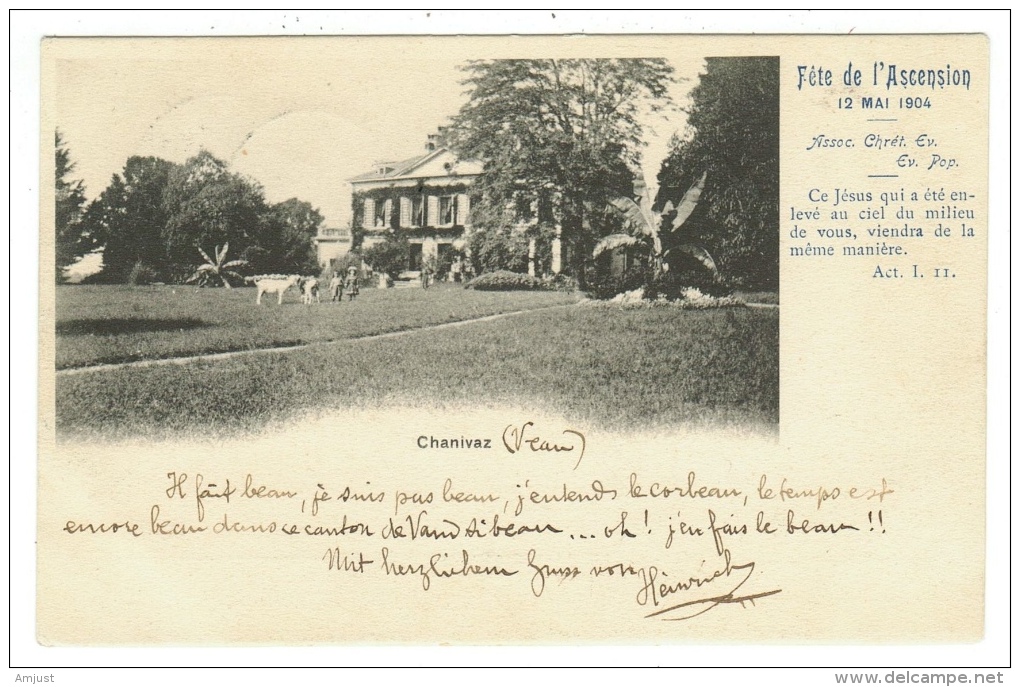 Fête de l'Ascension
12 MAI 1904
Assoc. Chrét. Ev.
Ev. Pop.
Ce Jésus qui a été en-
levé au ciel du milieu
de vous, viendra de la
même manière.
Act. I. 11.
Chanivaz (Vaud)
Il fait beau, je suis pas beau, j'entends le corbeau, le temps est
encore beau dans ce canton de Vaud si beau ... oh! j'en fais le beau!!
Mit herzlichem Gruss von Heinrich
Amjust
www.delcampe.net